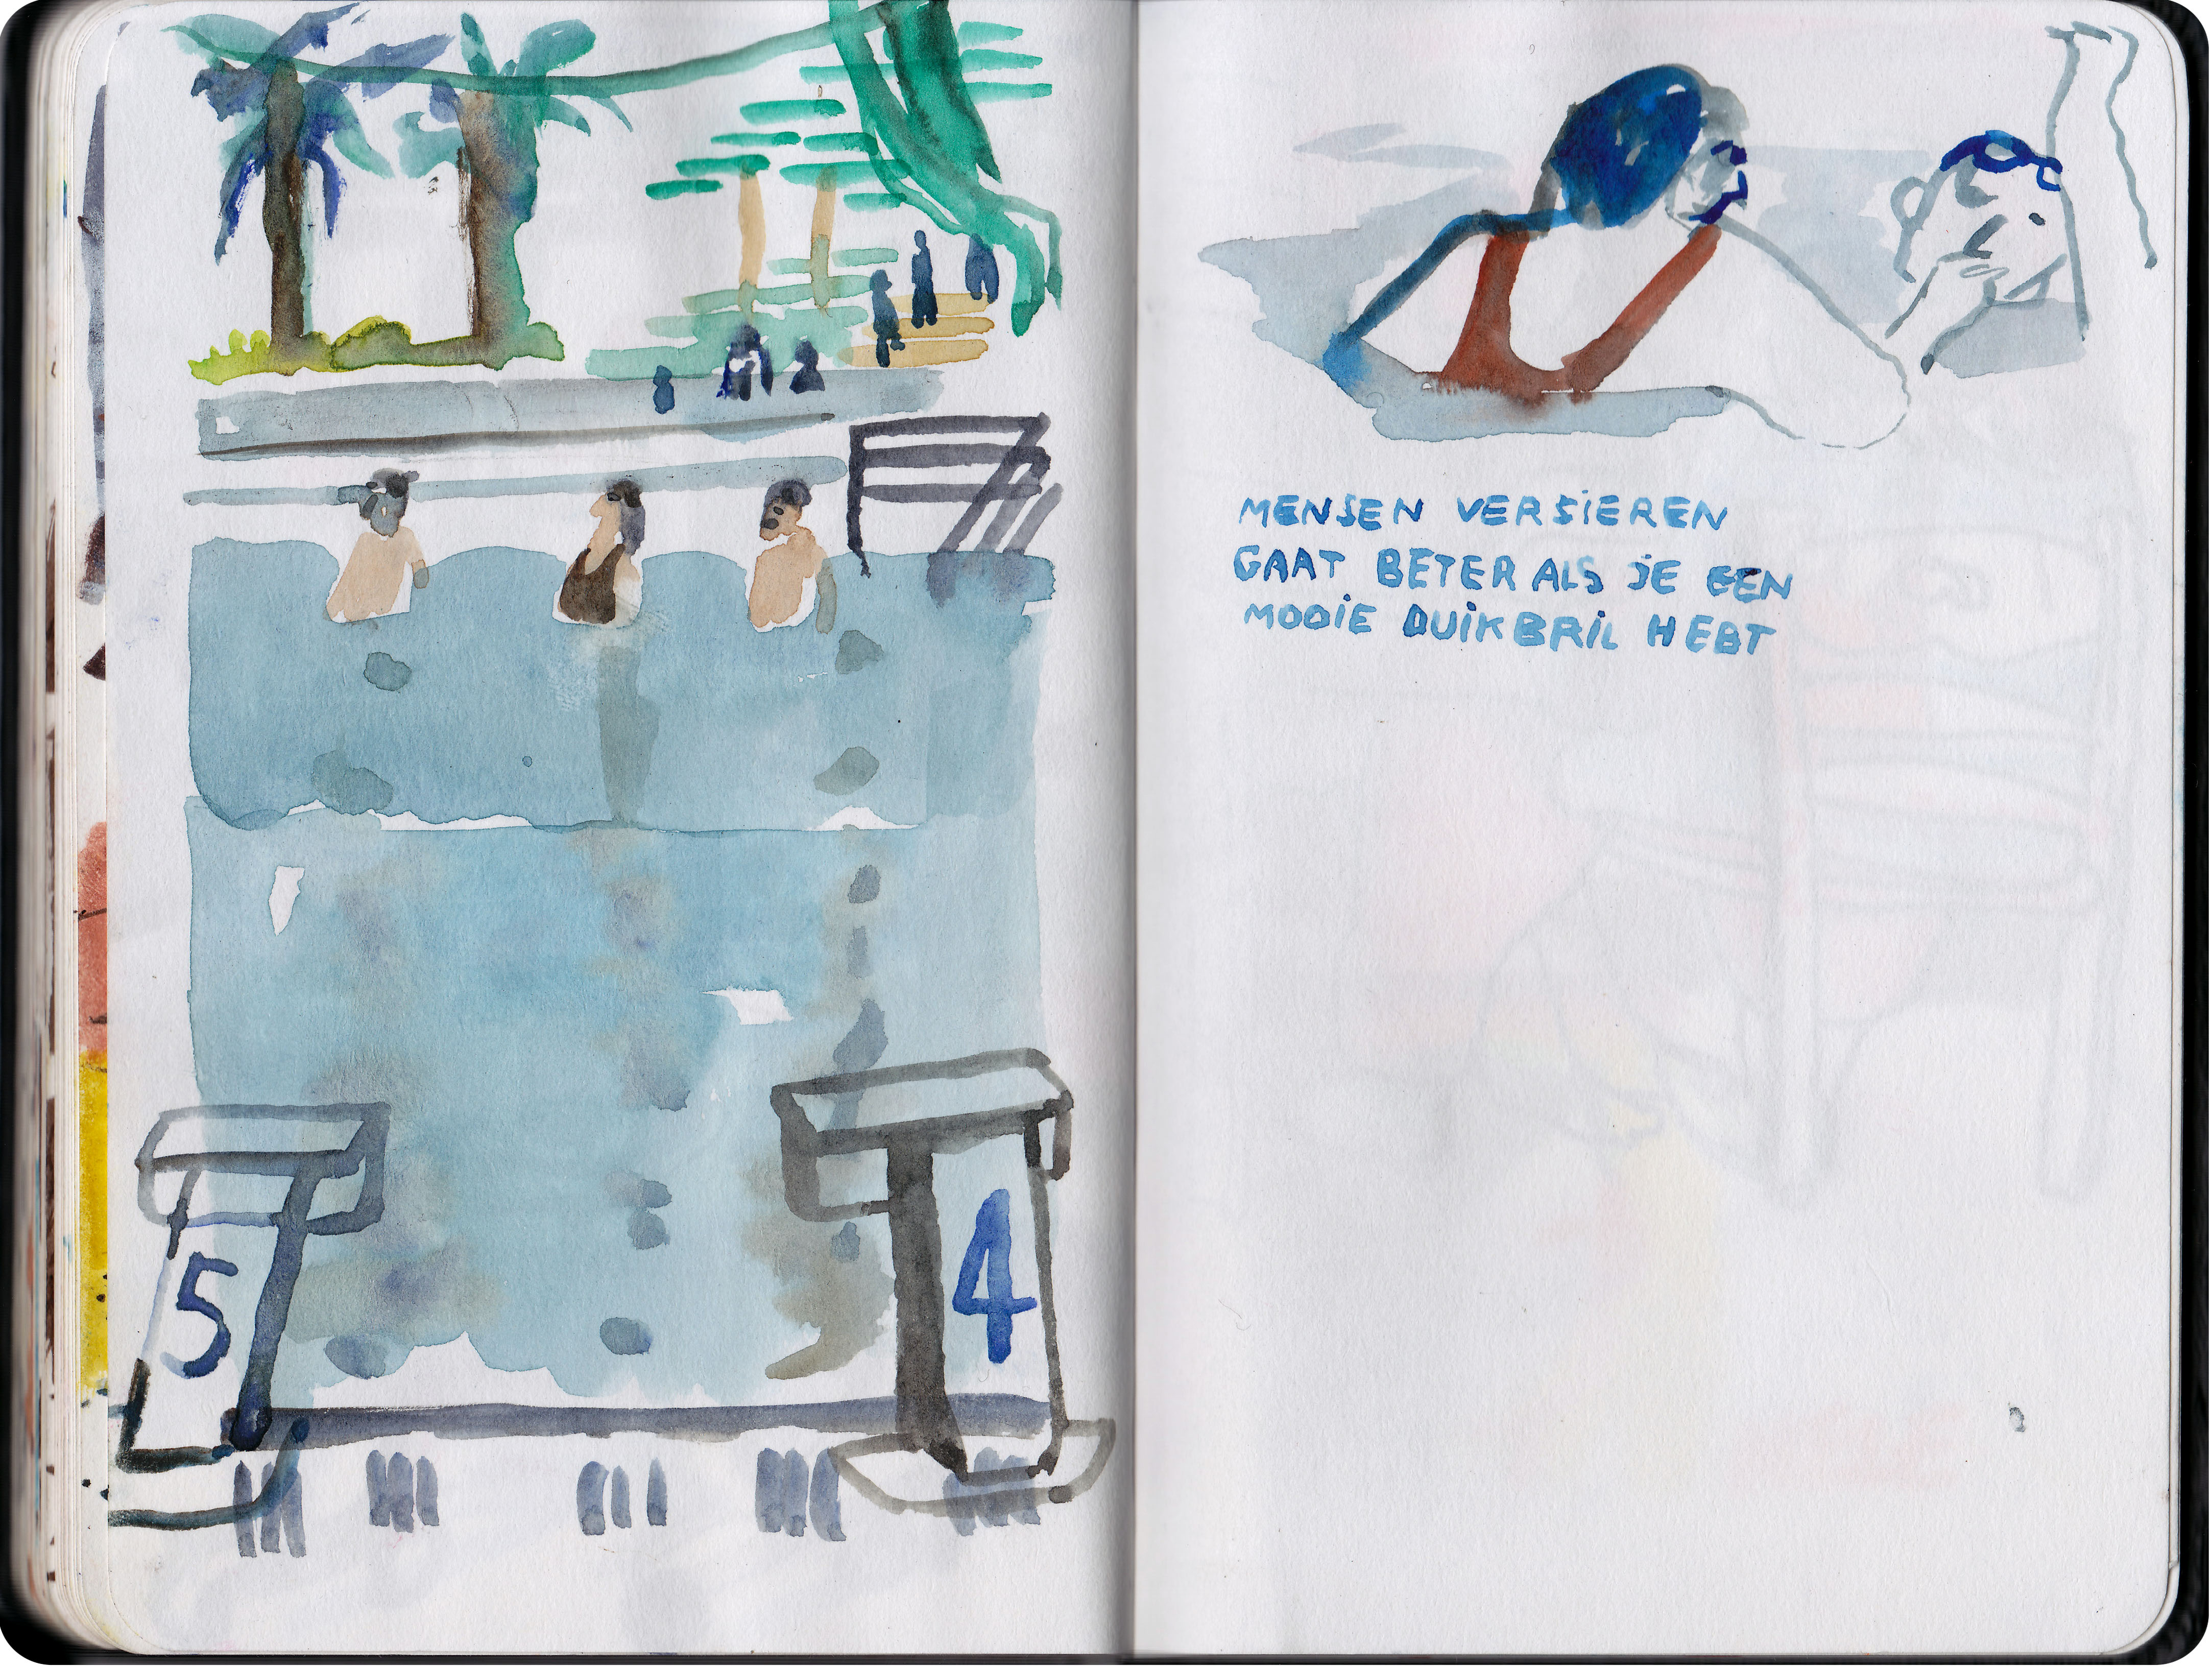 5
4
MENSEN VERSIEREN
GAAT BETER ALS JE EEN
MOOIE DUIKBRIL HEBT